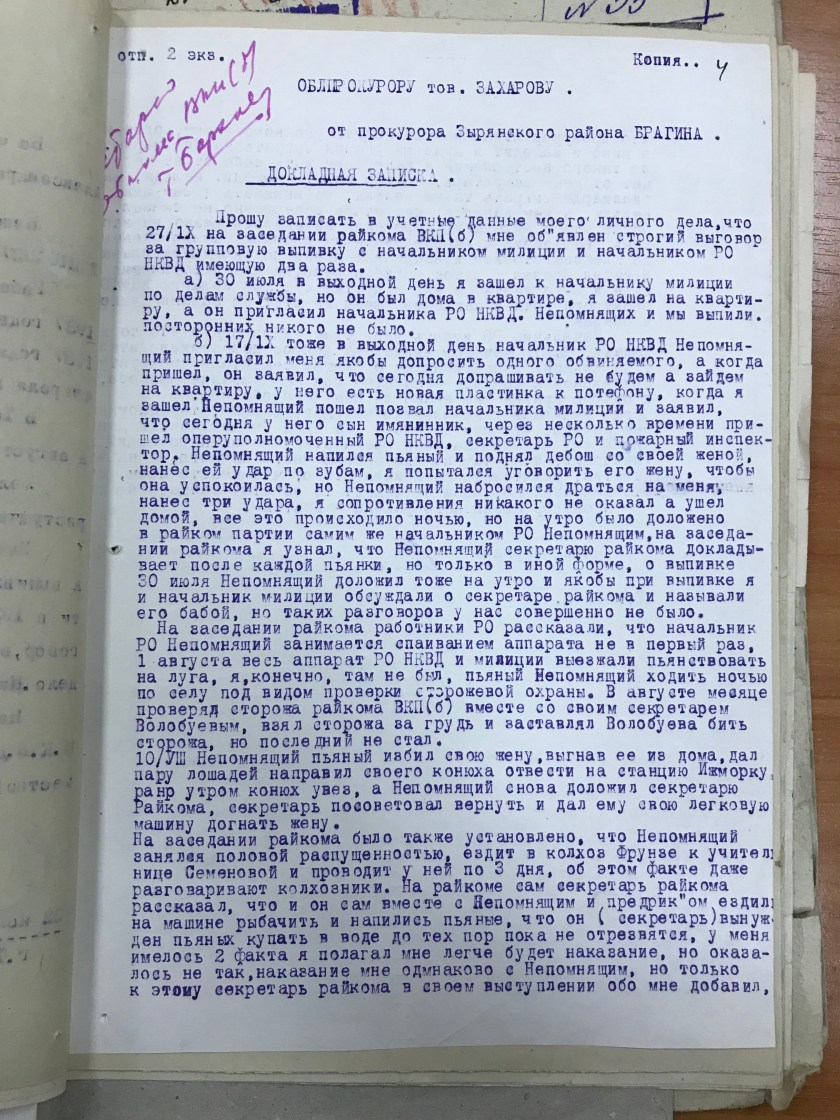 № 33
отп. 2 экз.
Копия.. 4
ОБЛПРОКУРОРУ тов. ЗАХАРОВУ .
ВКП(б)
от прокурора Зырянского района БРАГИНА .
ДОКЛАДНАЯ ЗАПИСКА .
Прошу записать в учетные данные моего личного дела,что
27/1Х на заседании райкома ВКП(б) мне об"явлен строгий выговор
за групповую выпивку с начальником милиции и начальником РО
НКВД имеющую два раза.
а) 30 июля в выходной день я зашел к начальнику милиции
по делам службы, но он был дома в квартире, я зашел на кварти-
ру, а он пригласил начальника РО НКВД. Непомнящих и мы выпили.
посторонних никого не было.
б) 17/1Х тоже в выходной день начальник РО НКВД Непомня-
щий пригласил меня якобы допросить одного обвиняемого, а когда
пришел, он заявил, что сегодня допрашивать не будем а зайдем
на квартиру, у него есть новая пластинка к потефону, когда я
зашел Непомнящий пошел позвал начальника милиции и заявил,
что сегодня у него сын имянинник, через несколько времени при-
шел оперуполномоченный РО НКВД, секретарь РО и пожарный инспек-
тор. Непомнящий напился пьяный и поднял дебош со своей женой,
нанес ей удар по зубам, я попытался уговорить его жену, чтобы
она успокоилась, но Непомнящий набросился драться на меня,
нанес три удара, я сопротивления никакого не оказал а ушел
домой, все это происходило ночью, но на утро было доложено
в райком партии самим же начальником РО Непомнящим,на заседа-
нии райкома я узнал, что Непомнящий секретарю райкома доклады-
вает после каждой пьянки, но только в иной форме, о выпивке
30 июля Непомнящий доложил тоже на утро и якобы при выпивке я
и начальник милиции обсуждали о секретаре райкома и называли
его бабой, но таких разговоров у нас совершенно не было.
На заседании райкома работники РО рассказали, что начальник
РО Непомнящий занимается спаиванием аппарата не в первый раз,
1 августа весь аппарат РО НКВД и милиции выезжали пьянствовать
на луга, я,конечно, там не был, пьяный Непомнящий ходить ночью
по селу под видом проверки сторожевой охраны. В августе месяце
проверяд сторожа райкома ВКП(б) вместе со своим секретарем
Волобуевым, взял сторожа за грудь и заставлял Волобуева бить
сторожа, но последний не стал.
10/УШ Непомнящий пьяный избил свою жену,выгнав ее из дома,дал
пару лошадей направил своего конюха отвести на станцию Ижморку,
ранр утром конюх увез, а Непомнящий снова доложил секретарю
Райкома, секретарь посоветовал вернуть и дал ему свою легковую
машину догнать жену.
На заседании райкома было также установлено, что Непомнящий
занялся половой распущенностью, ездит в колхоз Фрунзе к учител
нице Семеновой и проводит у ней по 3 дня, об этом факте даже
разговаривают колхозники. На райкоме сам секретарь райкома
рассказал, что и он сам вместе с Непомнящим и предрик"ом ездил
на машине рыбачить и напились пьяные, что он ( секретарь)вынуж
ден пьяных купать в воде до тех пор пока не отрезвятся, у меня
имелось 2 факта я полагал мне легче будет наказание, но оказа-
лось не так,наказание мне одмнаково с Непомнящим, но только
к этому секретарь райкома в своем выступлении обо мне добавил,